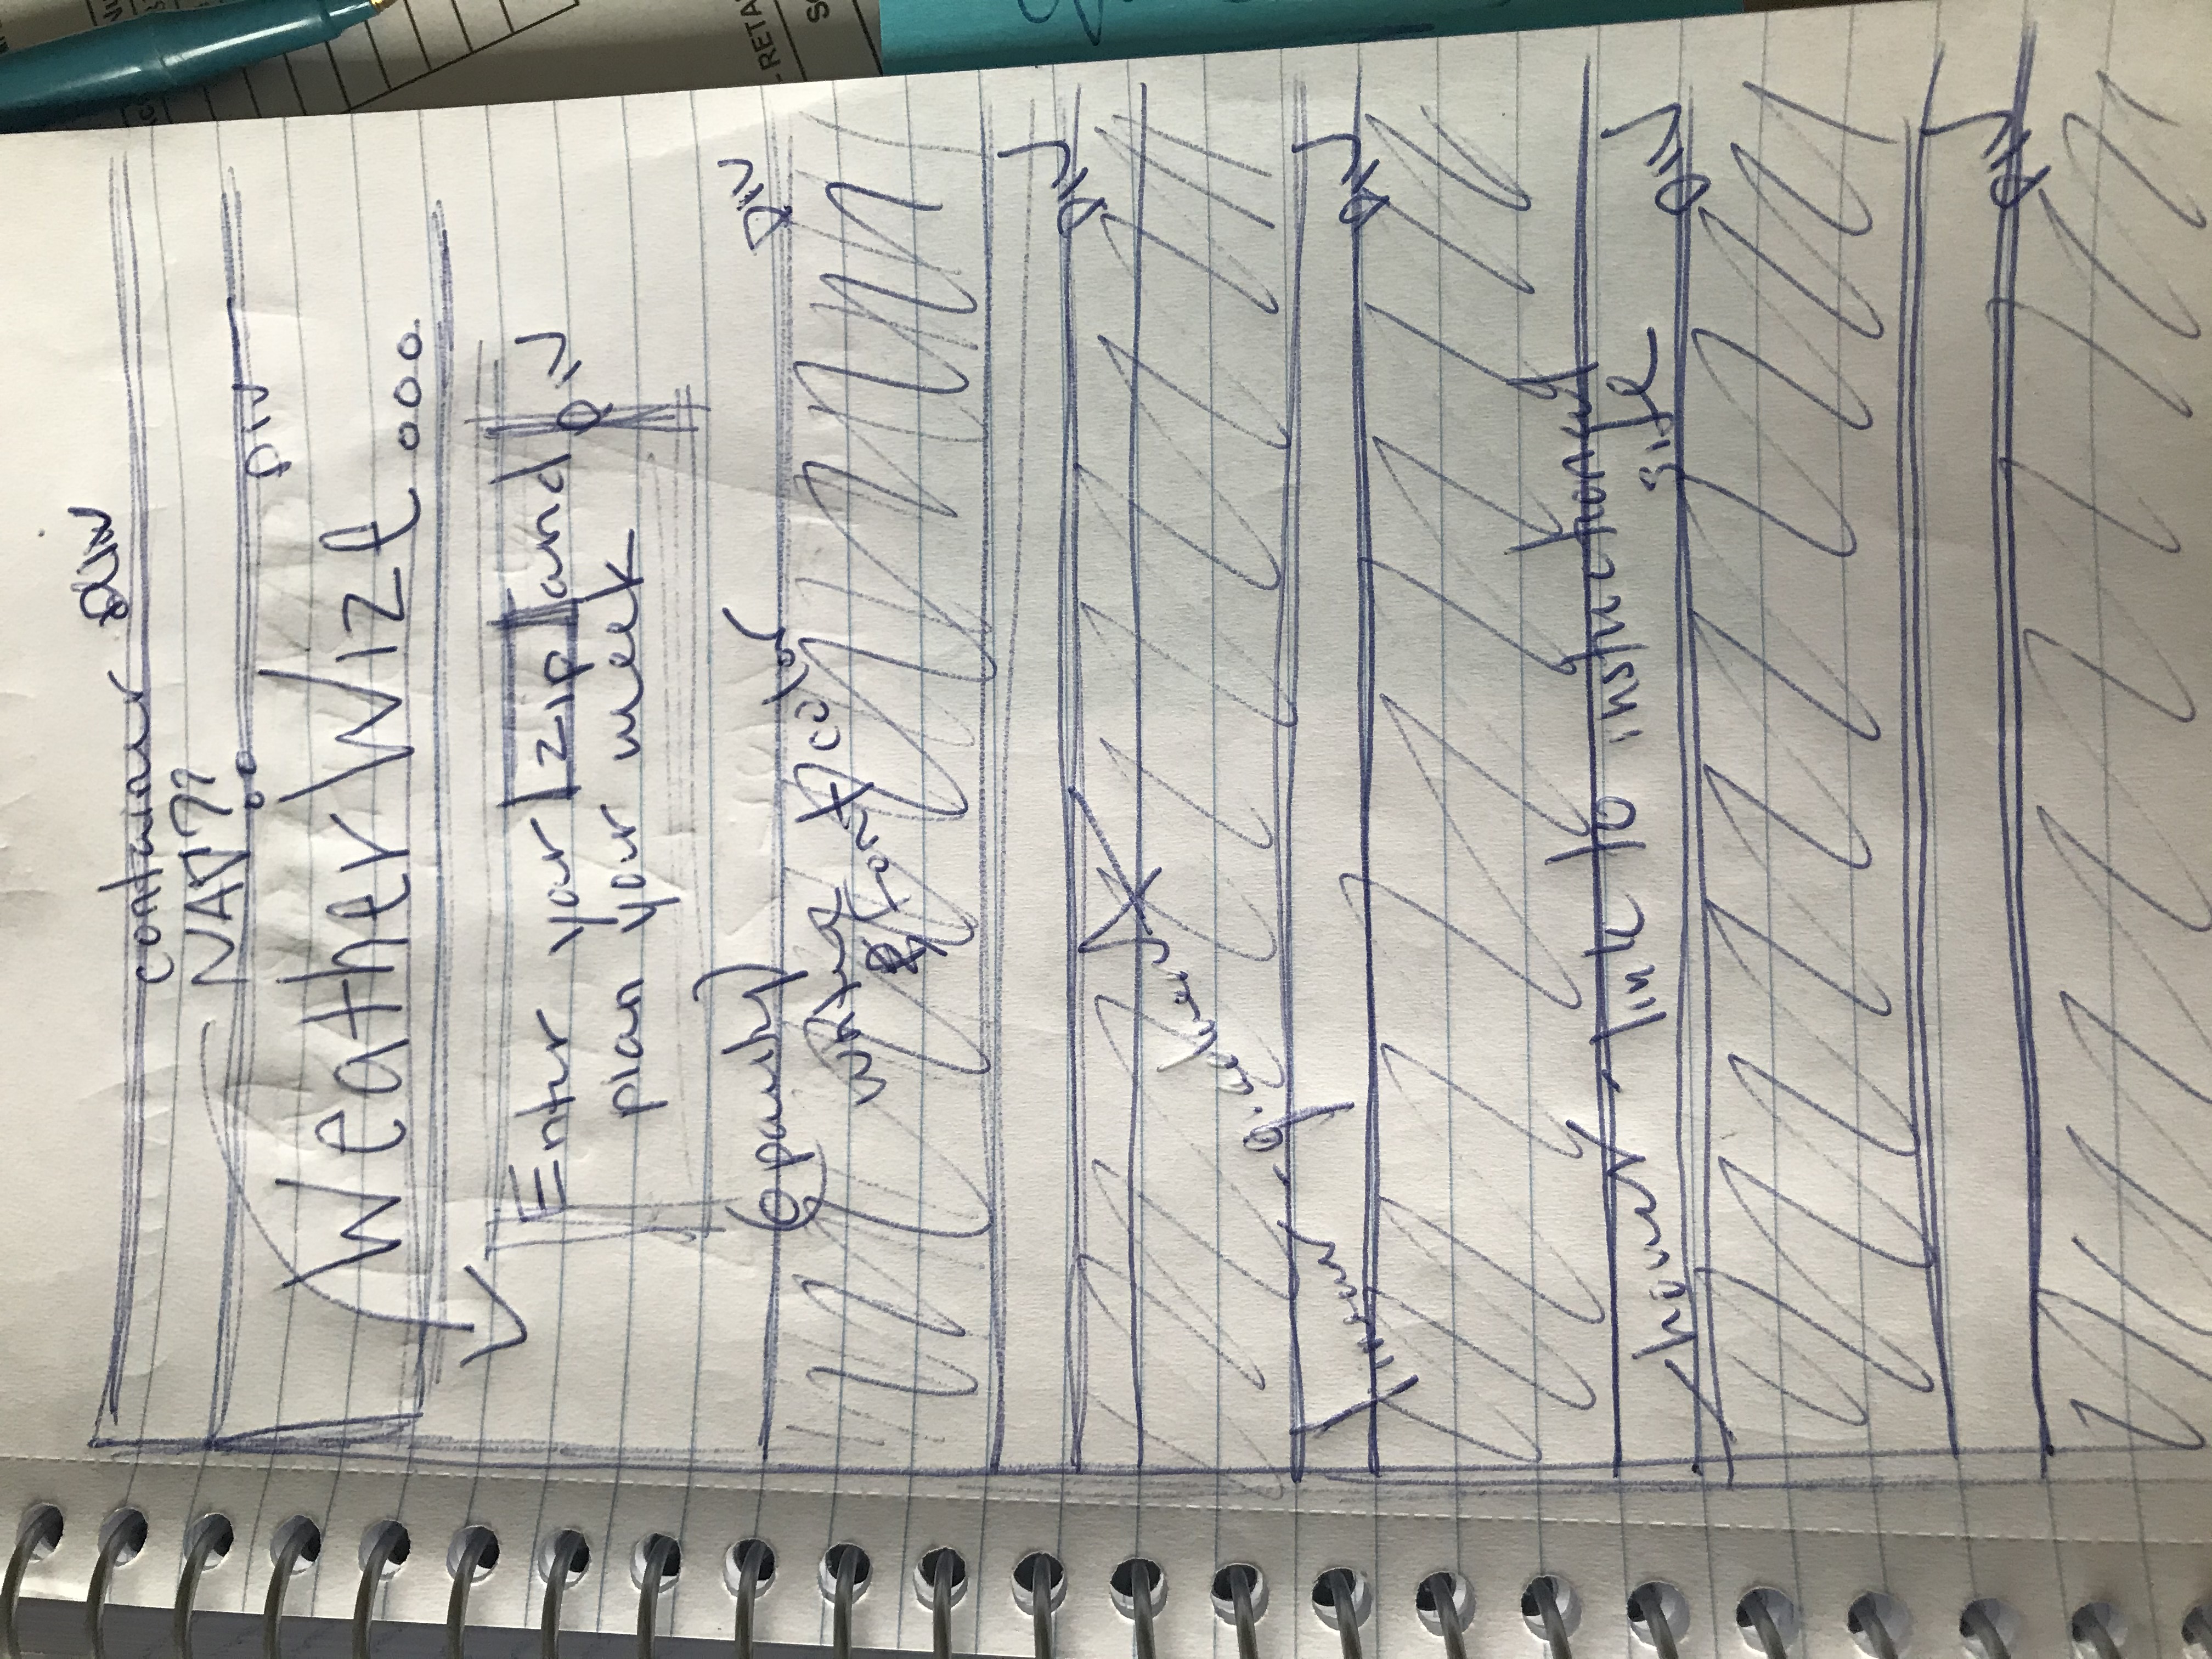 container DIV
NAV??
DIV
WeatherWize...
Enter your zip and
DIV
plan your week
(opacity)
DIV
white
font color
DIV
linear-gradient
DIV
hover - link to instructional
site
DIV
DIV
- RETA